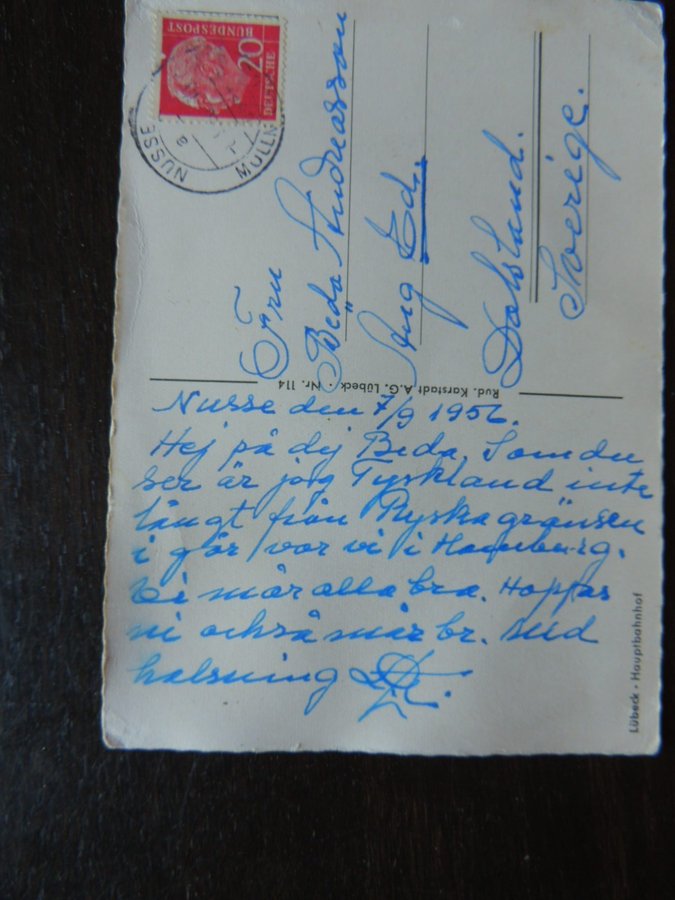 Nusse den 7/9 1956.
Hej på dej Beda. Som du
ser är jag Tyskland inte
långt från Ryska gränsen
i går var vi i Hamburg.
Vi mår alla bra. Hoppas
ni också mår br. med
halsning
Fru
Beda Andreasson
Äng Ed.
Dalsland.
Sverige.
DEUTSCHE
BUNDESPOST
20
NUSSE
MÖLLN
Rud. Karstadt A.G. Lübeck · Nr. 114
Lübeck · Hauptbahnhof